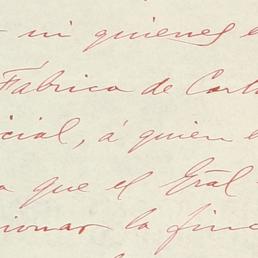 ni quienes e
Fábrica de Cart
icial, á quien e
a que el Gral
ionar la finc